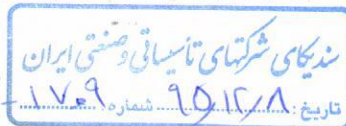 سندیکای شرکتهای تأسیساتی وصنعتی ایران
تاریخ: ۹۵/۱۲/۸ شماره ۱۷۰۹